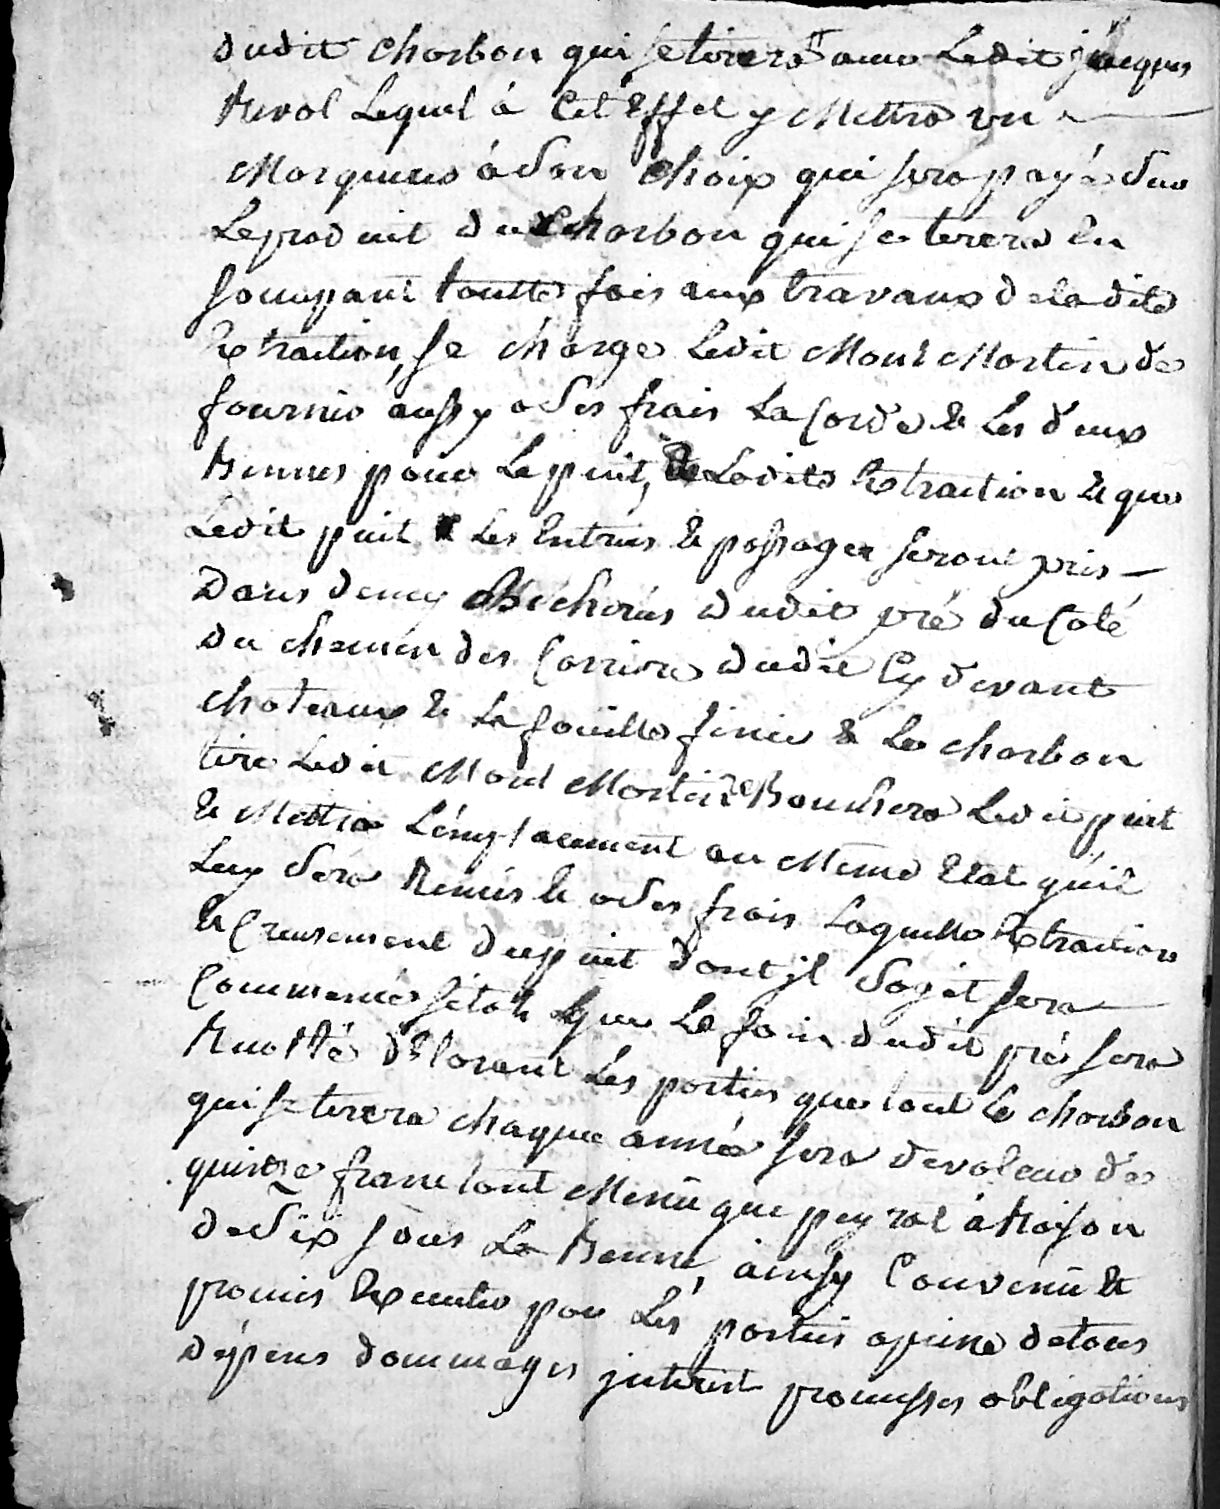 dudit charbon qui se tirera avec Ledit jacques
Revol Lequel á Cet Effet y Mettra un
Marqueur á Son Choix qui sera payé Sur
Le produit du Charbon qui se tirera En
soccupant toutte fois aux travaux de la dite
Extraction, se charge Ledit Mont Martin de
fournir aussy a Ses frais La Corde & Les deux
Bennes pour Le puit, de Ladite Extraction & que
Ledit puit & Les Entrées & passages seront pris
Dans deux Bicherées dudit pré du Coté
du chemin des Carriere dudit Cy devant
chateaux & La fouille finie & Le charbon
tiré Ledit Mont Martin Bouchera Ledit puit
& Mettra L'emplacement au Meme Etat qu'il
Luy Sera Remis & a Ses frais Laquelle Extraction
& Creusement du puit dont jl Sagit sera
Commencé sitot que Le foin dudit pré sera
Recolté déclarant Les parties que tout Le charbon
qui se tirera chaque année sera de valeur de
quinze franc tant Menu que peyrat á Raison
de Six sous La Benne, ainsy Convenu &
promis Executer par Les parties a peine de tous
Dépens dommages jnterest promesses obligations